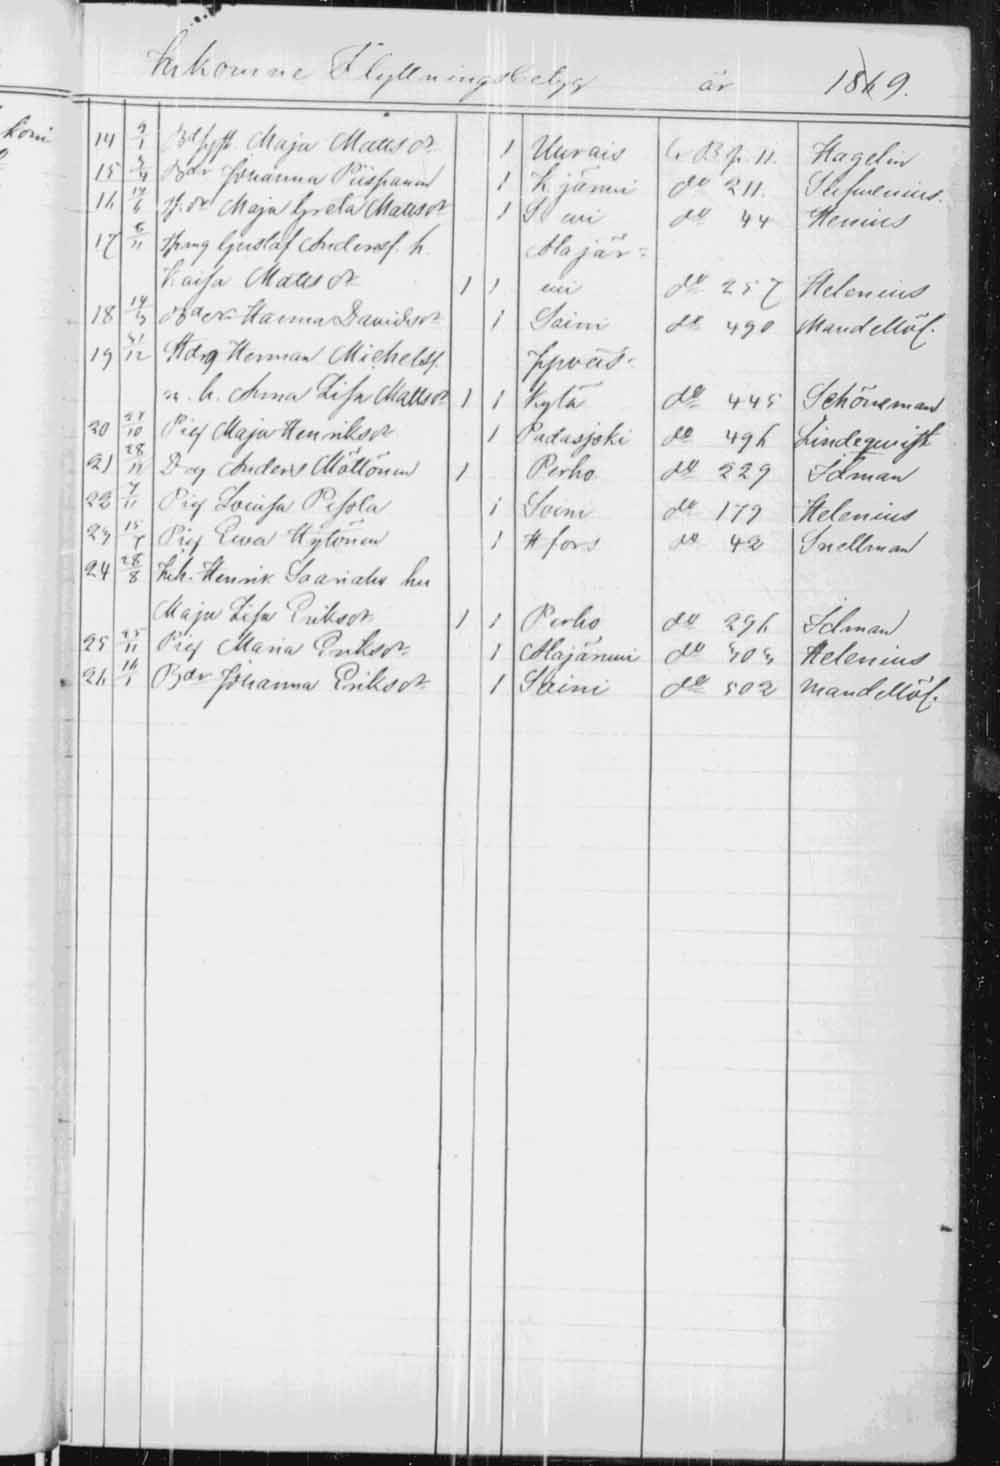 Inkomne Flyttningsbetyg år 1869.
14 9/1 Maja Mattsdr 1 Uurais C. B. p. 11. Hagelin
15 Bdr Johanna Piispanen 1 K järvi do 211.
16 Maja Greta Mattsdr 1 do 44 Henius
17 6/11 Gustaf Andersf. h. Alajär-
Kaisa Mattsdr 1 1 vi do 257 Helenius
18 14/3 Hanna Davidsdr 1 Soini do 490 Mandellöf.
19 31/12 Herman Michelsf.
m. h. Anna Lisa Mattsdr 1 1 kylä do 445 Schöneman
20 28/10 Pig Maja Henriksdr 1 Padasjoki do 496 Lindeqwist
21 28/11 Dg Anders Möttönen 1 Perho do 229 Idman
22 7/11 Pig Lovisa Pesola 1 Soini do 179 Helenius
23 15/7 Pig Ewa Hytönen 1 Hfors do 42 Snellman
24 28/8 Inh. Henrik Saariaho hu
Maja Lisa Eriksdr 1 1 Perho do 296 Idman
25 25/11 Pig Maria Eriksdr 1 Alajärwi do 505 Helenius
26 16/1 Bdr Johanna Eriksdr 1 Soini do 502 Mandellöf.